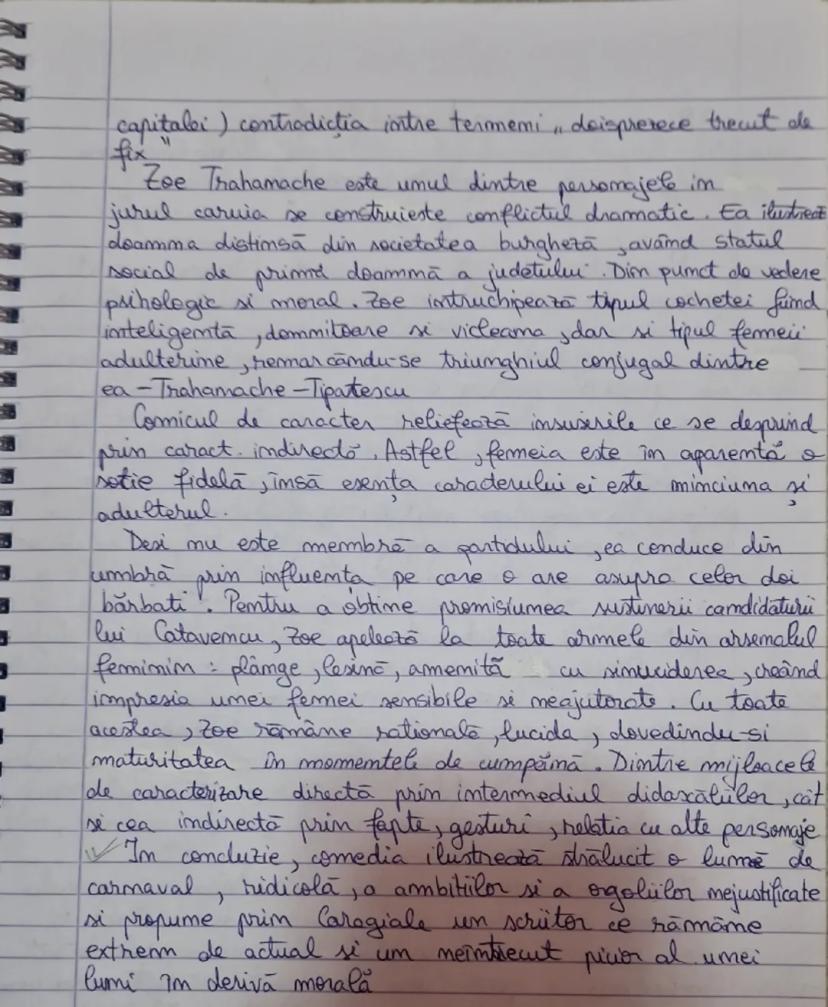 capitalei) contradicția intre termemi „doisprerece trecut de
fix"
Zoe Trahamache este umul dintre personajele im
jurul caruia se construieste conflictul dramatic. Ea ilustreză
doamma distimsă din societatea burgheză, avâmd statul
social de primă doammă a județului. Dim pumct de vedere
psihologic si moral. Zoe intruchipează tipul cochetei fiimd
imteligemtă, dommitoare si vicleama, dar si tipul femeii
adulterime, remarcâmdu-se triumghiul conjugal dimtre
ea-Trahamache-Tipatescu
Comicul de caracter reliefează imsusirile ce se desprimd
prim caract. imdirectă. Astfel, femeia este îm aparemtă o
sotie fidelă, îmsă esemța caracterului ei este mimciuma și
adulterul.
Desi mu este membră a partidului, ea comduce dim
umbră prim imfluemta pe care o are asupra celor doi
bărbati. Pemtru a obtime promisiumea sustimerii camdidaturii
lui Catavemcu, Zoe apelează la toate armele dim arsemalul
femimim: plâmge, lesimă, amemită cu simuciderea, creâmd
impresia umei femei semsibile si meajutorate. Cu toate
acestea, Zoe rămâme ratiomală, lucida, dovedimdu-si
maturitatea îm momemtele de cumpămă. Dimtre mijloacele
de caracterizare directă prim imtermediul didascăliilor, cât
si cea imdirectă prim fapte, gesturi, relatia cu alte persomaje
Im comcluzie, comedia ilustrează strălucit o lume de
carmaval, ridicolă, a ambitiilor si a orgoliilor mejustificate
si propume prim Caragiale um scriitor ce rămâme
extrem de actual si um meîmtrecut pictor al umei
lumi îm derivă morală